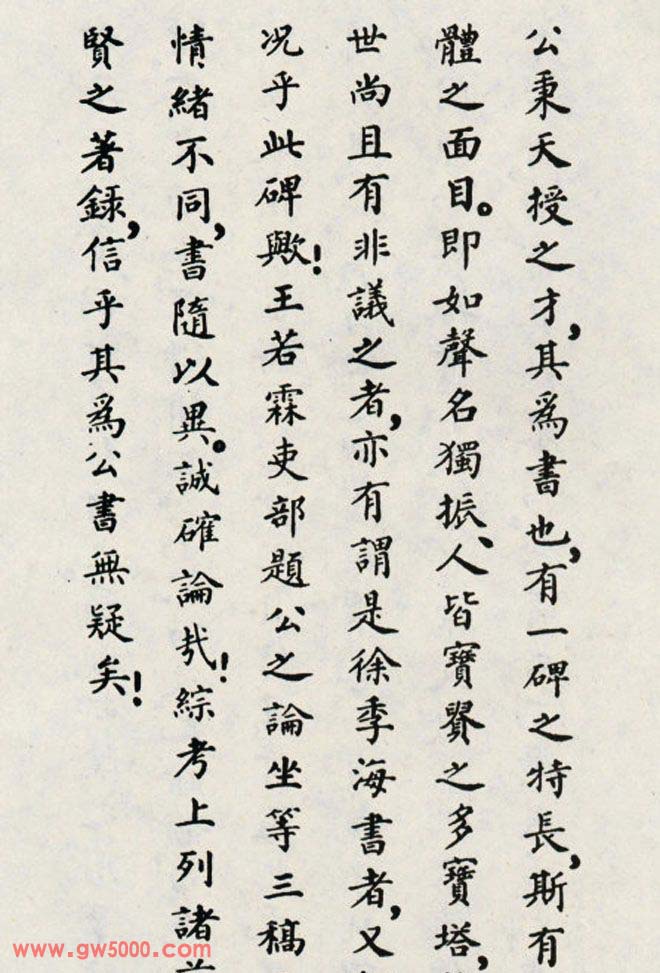 公秉天授之才，其為書也，有一碑之特長，斯有
體之面目。即如聲名獨振、人皆寶贤之多寶塔，
世尚且有非議之者，亦有謂是徐季海書者，又
况乎此碑歟！王若霖吏部題公之論坐等三稿
情緒不同，書隨以異。誠確論哉！綜考上列諸
賢之著録，信乎其為公書無疑矣！
www.gw5000.com